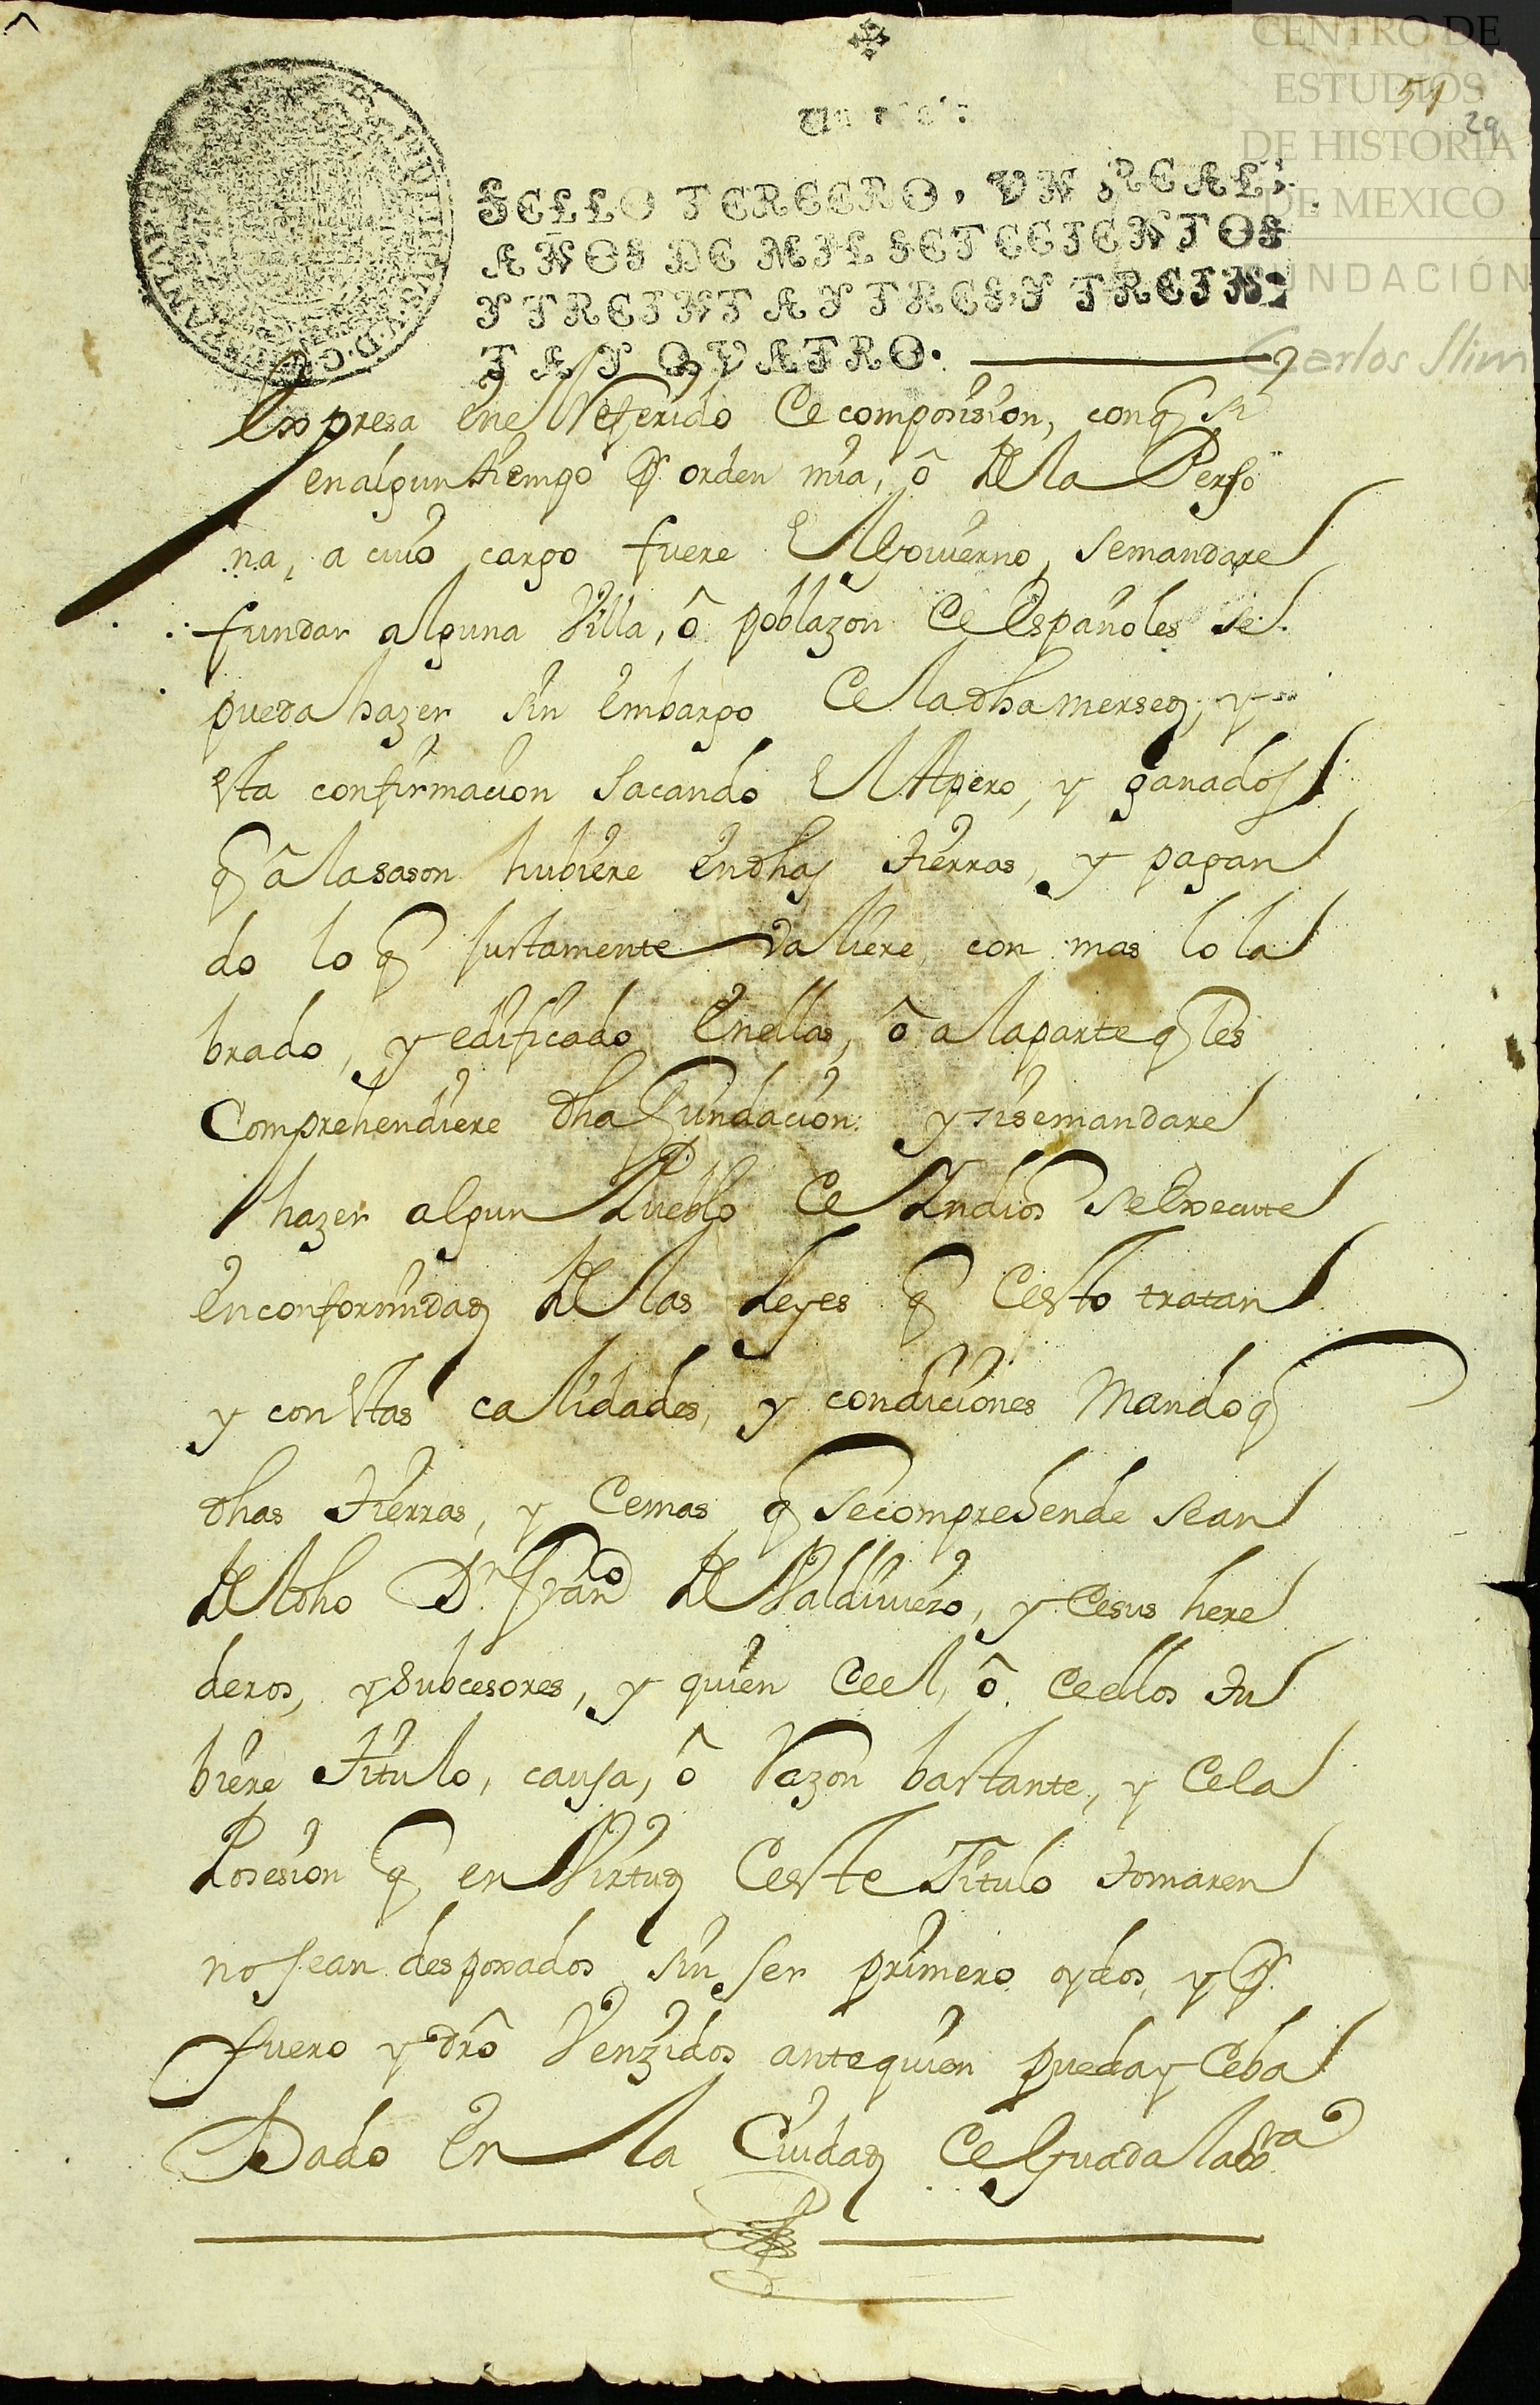 CENTRO DE
ESTUDIOS
DE HISTORIA
DE MEXICO
FUNDACIÓN
Carlos Slim
51
29
Un real:
SELLO TERCERO, VN REAL,
AÑOS DE MIL SETECIENTOS
Y TREINTA Y TRES, Y TREIN-
TA Y QVATRO.
Expresa enel Referido de composision, conq si
en algun tiempo pr orden mia, ô de la Perso
na, a cuio cargo fuere el Govierno, se mandare
fundar alguna Villa, ô poblazon de Españoles se
pueda hazer sin embargo de la dha mersed, y
esta confirmacion sacando el Apero, y ganados
q â la sason hubiere en dhas tierras, y pagan
do lo q justamente valiere, con mas lo la
brado, y edificado en ellas, ô a la parte q les
Comprehendiere dha Fundacion: y si se mandare
hazer algun Pueblo de Indios se execute
en conformidad de las Leyes q desto tratan
y con estas calidades, y condiciones Mando q
dhas tierras, y demas q se comprehende sean
del dho Dn Franco de Valdivieso, y de sus here
deros, y subcesores, y quien de el, ô de ellos tu
biere titulo, causa, ô Razon bastante, y de la
Posesion q en Virtud deste Titulo tomaren
no sean despoxados sin ser primero oydos, y pr
fuero y drô Venzidos ante quien pueda y deba
Dado en la Ciudad de Guadalaxra